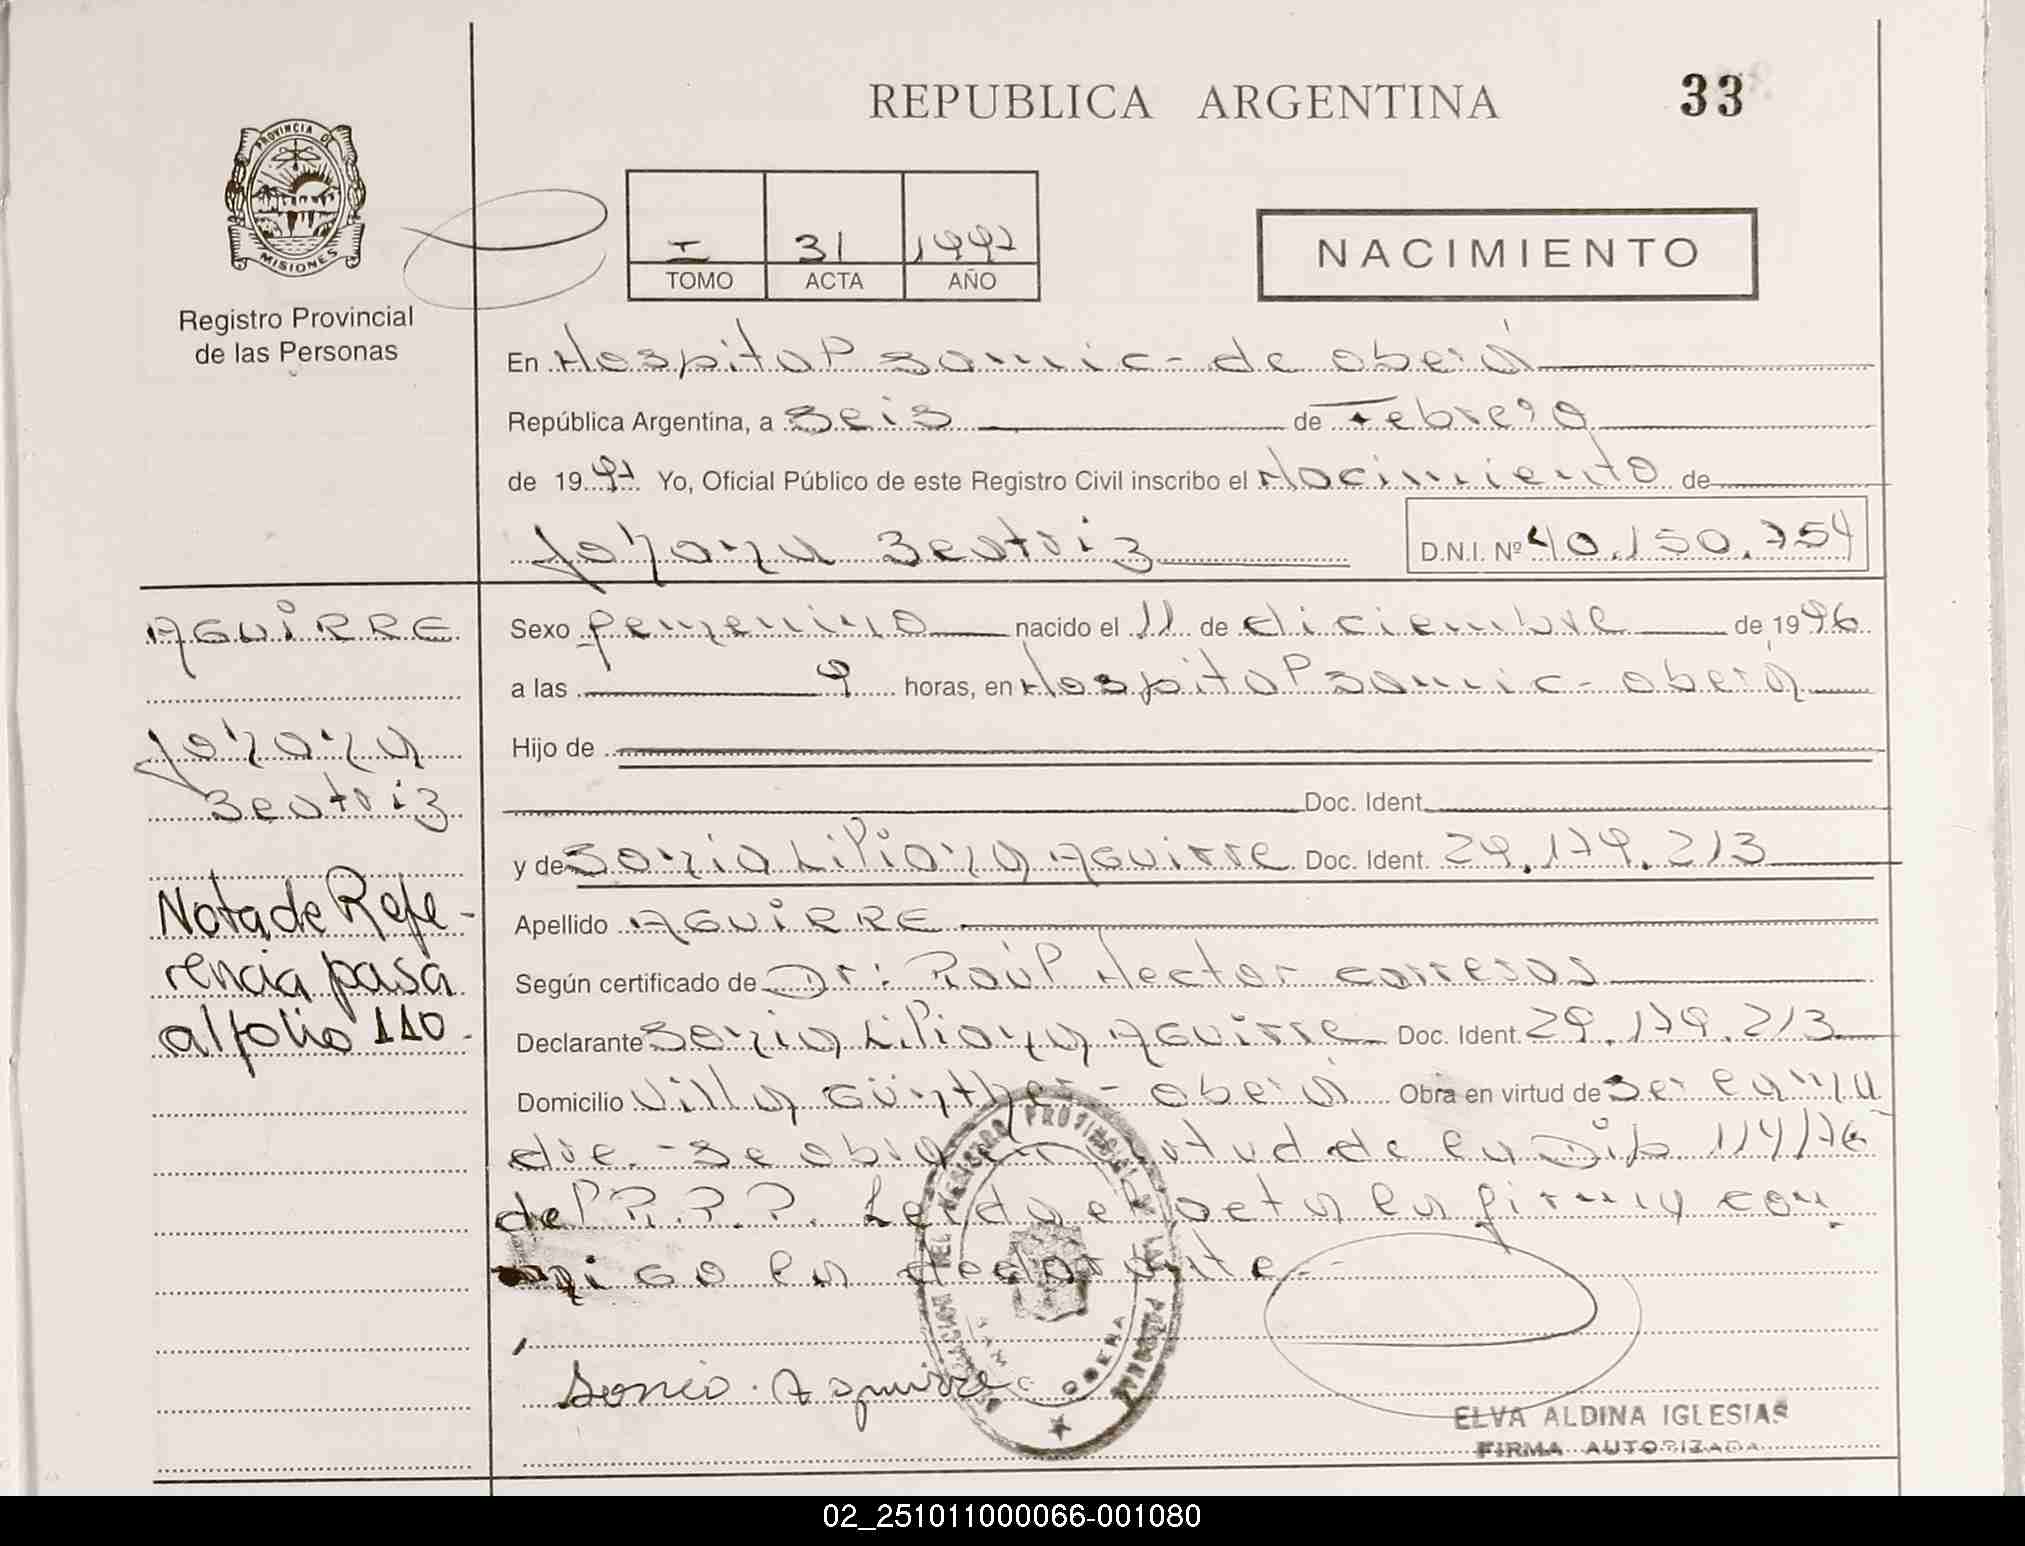 REPUBLICA ARGENTINA
33
PROVINCIA DE
MISIONES
Registro Provincial
de las Personas
I 31 1997
TOMO ACTA AÑO
NACIMIENTO
En Hospital Samic - de oberá
República Argentina, a seis de Febrero
de 1997 Yo, Oficial Público de este Registro Civil inscribo el Nacimiento de
Johana Beatriz D.N.I. Nº 40.150.754
AGUIRRE
Johana
Beatriz
Nota de Refe-
rencia pasa
al folio 110.
Sexo femenino nacido el 11 de diciembre de 1996
a las 9 horas, en Hospital Samic - oberá
Hijo de
Doc. Ident.
y de Sonia Liliana Aguirre Doc. Ident. 29.179.213
Apellido AGUIRRE
Según certificado de Dr: Raúl Hector
Declarante Sonia Liliana Aguirre Doc. Ident. 29.179.213
Domicilio Villa Günther - oberá Obra en virtud de ser la ma
dre. - Se en virtud de la Disp 114/76
del R.P.P. Leída el acta la firma con
migo la declarante.
Sonia Aguirre
OBERA
ELVA ALDINA IGLESIAS
FIRMA AUTORIZADA
02_251011000066-001080